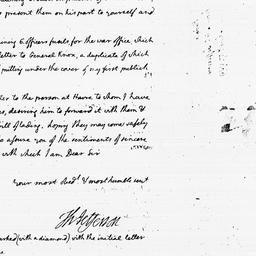 present them on his part to yourself and
Officers funds for the war office, which
letter to General Knox, a duplicate of which
putting under the cover of my first publick
to the person at Havre to whom I have
desiring him to forward it with them &
bill of lading. hoping they may come safely,
assure you of the sentiments of sincere
with which I am Dear Sir
Your most obedt & most humble servt
Th: Jefferson
marked (with a diamond) with the initial letter